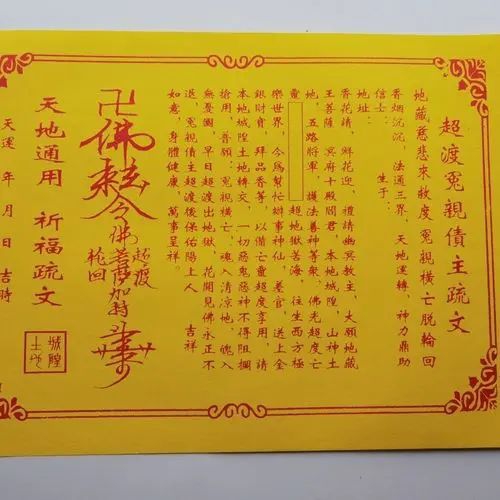 超渡冤親債主疏文
地藏慈悲來救度 冤親橫亡脫輪回
香烟沉沉，法通三界，天地運轉，神力鼎助
信士： 生于：
地址：
香花請，鮮花迎，禮請幽冥教主，大願地藏
王菩薩，冥府十殿閻君，本地城隍，山神土
地，五路將軍，護法善神等衆，佛光超度亡
靈 超地獄苦海，往生西方極
樂世界，今爲幫忙辦事神仙，善官，送上金
銀財寶，拜品香等，以備亡靈超度享用，請
本地城隍土地轉交，一切惡鬼惡神不得阻攔
搶用，普願：冤親橫亡，魂入清凉地，魄入
無憂園，早日超渡出地獄，花開見佛永正不
退，冤親債主超渡後保佑陽上人 吉祥
如意，身體健康，萬事呈祥。
卍佛敕令佛菩薩加持
超渡
輪回
天地通用 祈福疏文
天運 年 月 日 吉時
城隍
土地